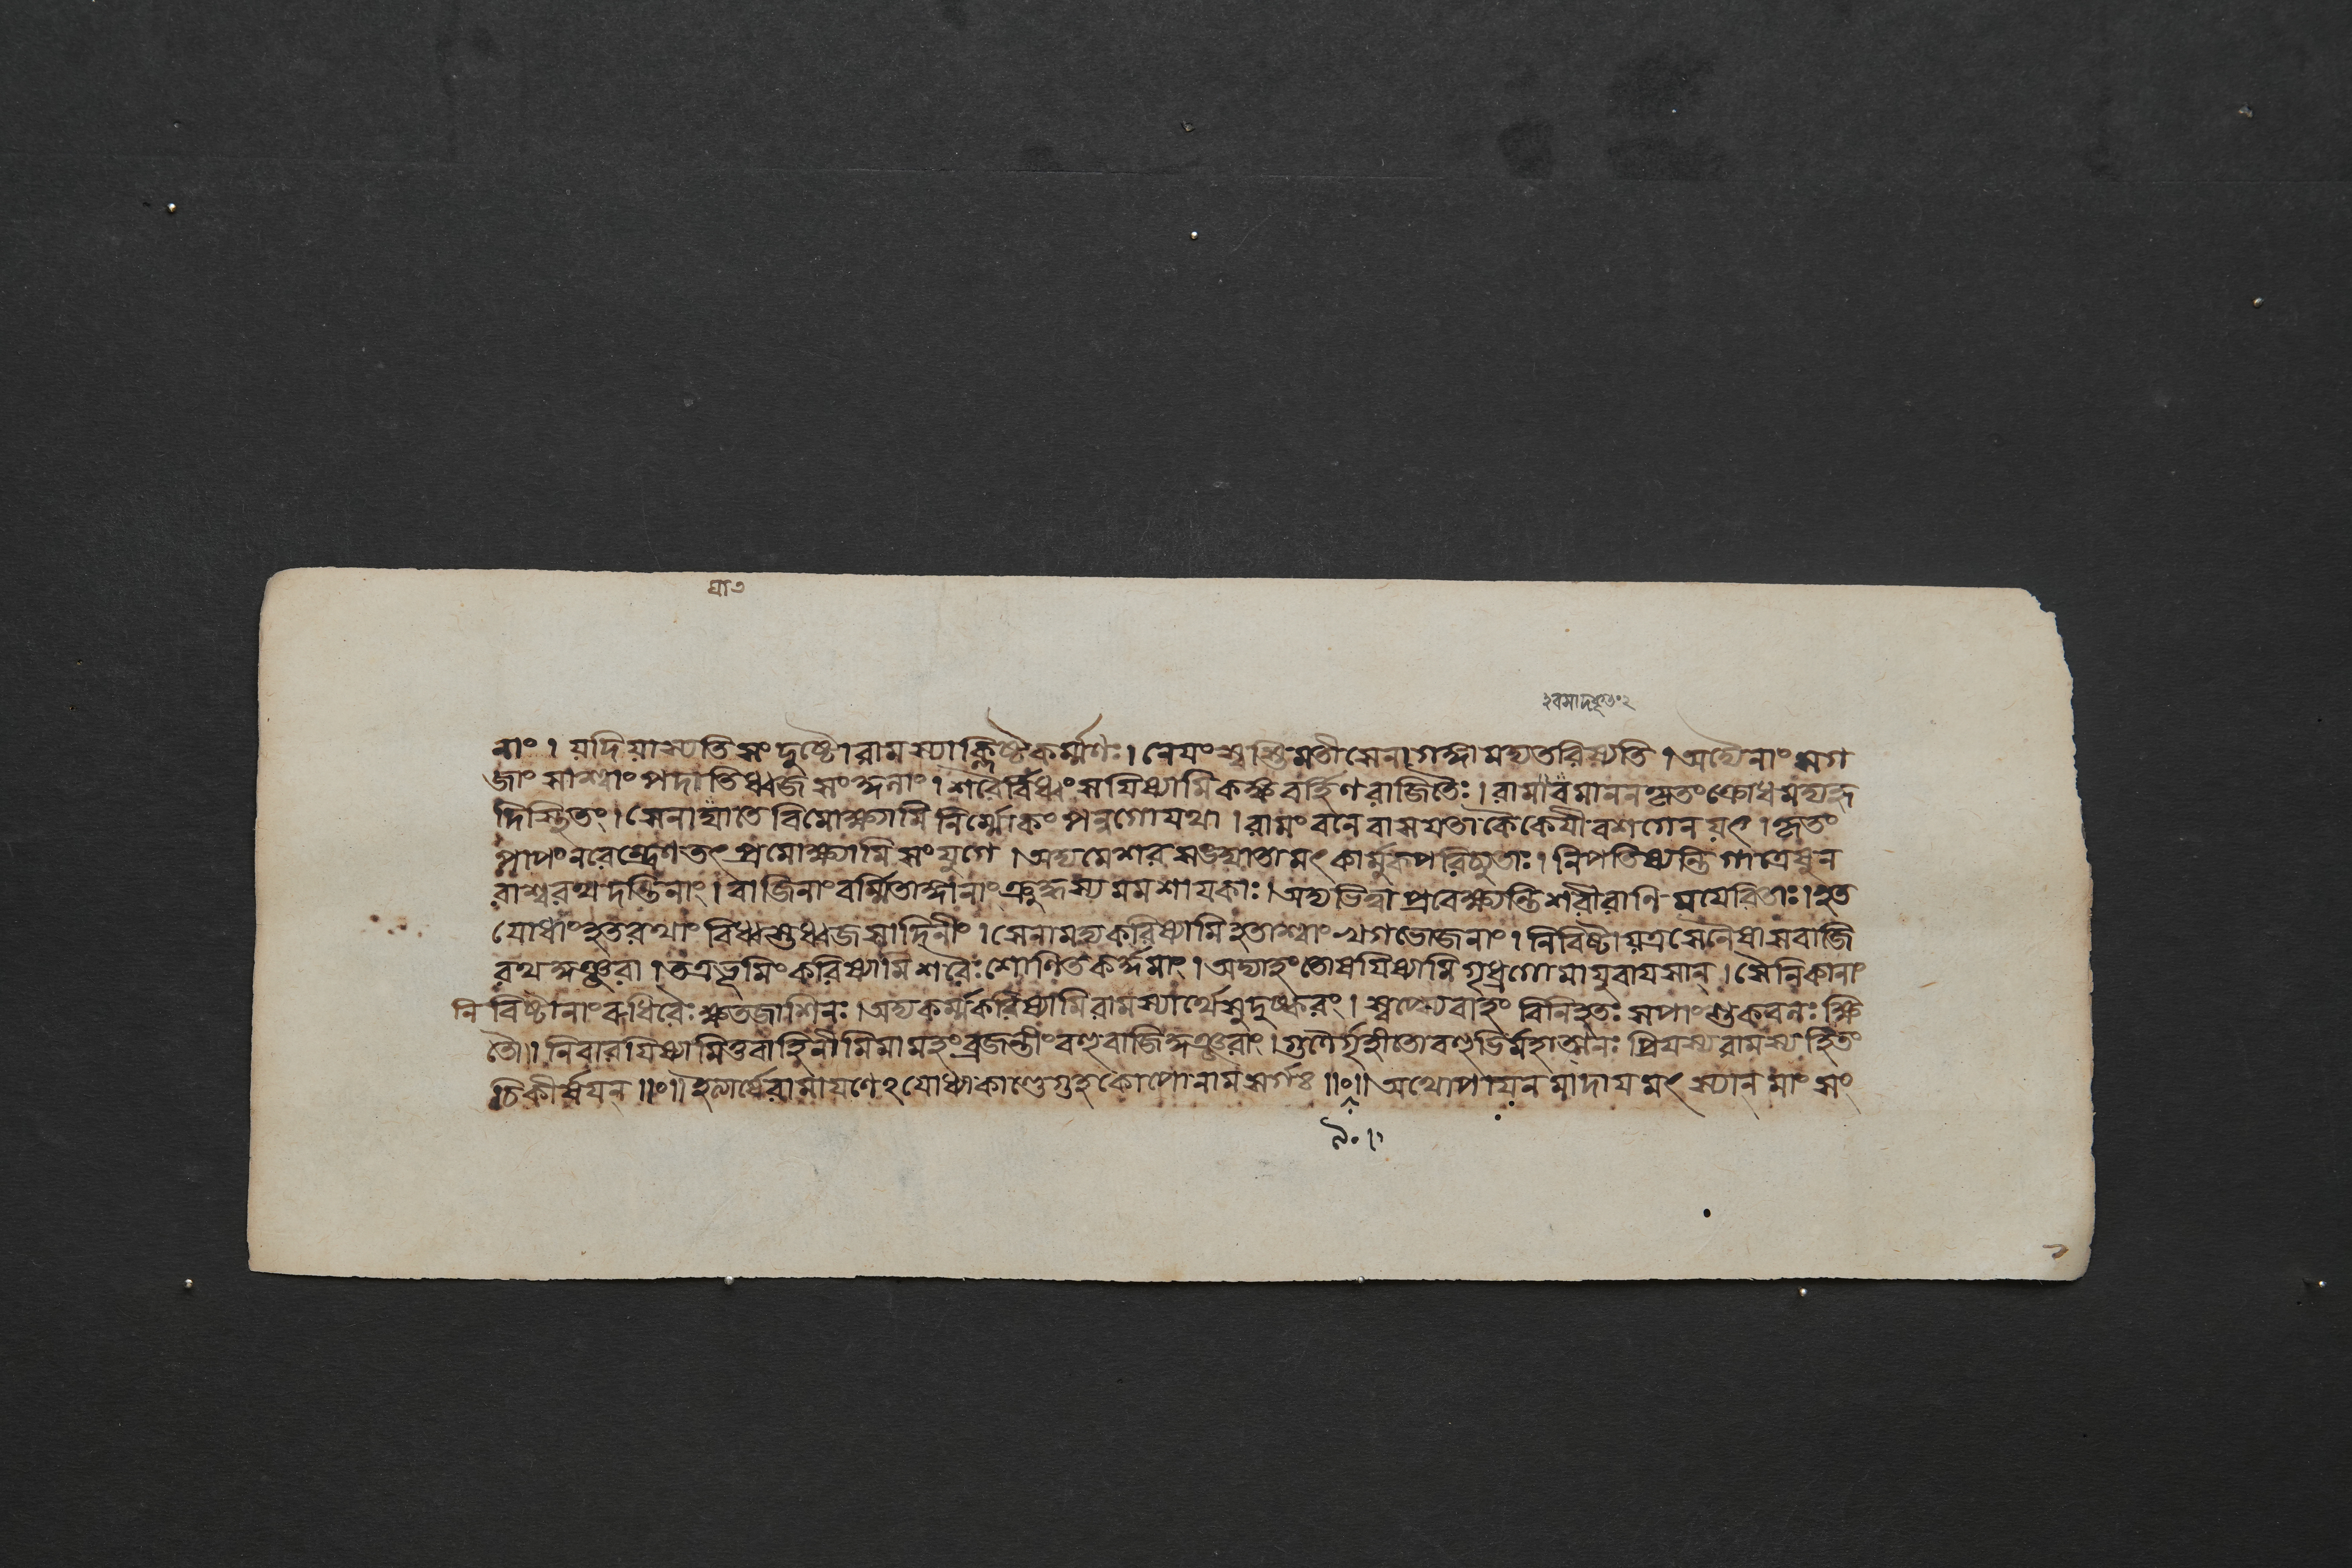 নাং । যদিযাস্যতি সংদুষ্টো রামস্যাক্লিষ্টকর্ম্মণঃ । নেয়ং স্বস্তিমতী সেনা গঙ্গামদ্য তরিষ্যতি । অদ্যৈনাং সগ
জাং সাশ্বাং পদাতিধ্বজসংঙ্গনাং । শরৈর্বিধ্বংসযিষ্যামি কঙ্কবর্হিণরাজিতৈঃ । রামাবমাননকৃতং ক্রোধমদ্য হৃ
দিস্থিতং । সেনাযাতে বিমোক্ষ্যামি নির্ম্মোকং পন্নগো যথা । রামং বনে বাসযতা কৈকেযীবশগেন যৎ । কৃতং
পাপং নরেন্দ্রেণ তৎ প্রমোক্ষ্যামি সংযুগে । অদ্য মে শর মৎকার্মুকপরিচ্যুতাঃ । নিপতিষ্যন্তি গাত্রেষু ন
রাশ্বরথদন্তিনাং । বাজিনাং বর্ম্মিতাঙ্গানাং ক্রুদ্ধস্য মম শাযকাঃ । অদ্য ভিত্বা প্রবেক্ষ্যন্তি শরীরানি মযেরিতাঃ । হত
যোধাং হতরথাং বিধ্বস্তধ্বজসাদিনীং । সেনামদ্য করিষ্যামি হতাশ্বাং খগভোজনাং । নিবিষ্টা যত্র সেনৈষা সবাজি
রথকুঞ্জরা । তত্র ভূমিং করিষ্যামি শরৈঃ শোণিতকর্দ্দমাং । অদ্যাহং তোষযিষ্যামি গৃধ্রগোমাযুবাযসান্ । সৈনিকানাং
নিবিষ্টানাং রুধিরৈঃ ক্ষতজাশিনঃ । অদ্য কর্ম্ম করিষ্যামি রামস্যার্থে সুদুষ্করং । স্বপ্স্যে বাহং বিনিহতঃ সপাংশুকবনঃ ক্ষি
তৌ ॥ নিবারযিষ্যামি তু বাহিনীমিমামহং ব্রজন্তীং বহুবাজিকুঞ্জরাং । গুণৈর্গৃহীতো বহুভির্মহাত্মনঃ প্রিযস্য রামস্য হিতং
চিকীর্ষযন্ ॥॰॥ ইত্যার্ষে রামাযণে ঽযোধ্যাকাণ্ডে গুহকোপো নাম সর্গঃ ॥॰॥ অথোপাযনমাদায মৎস্যান মাংসং